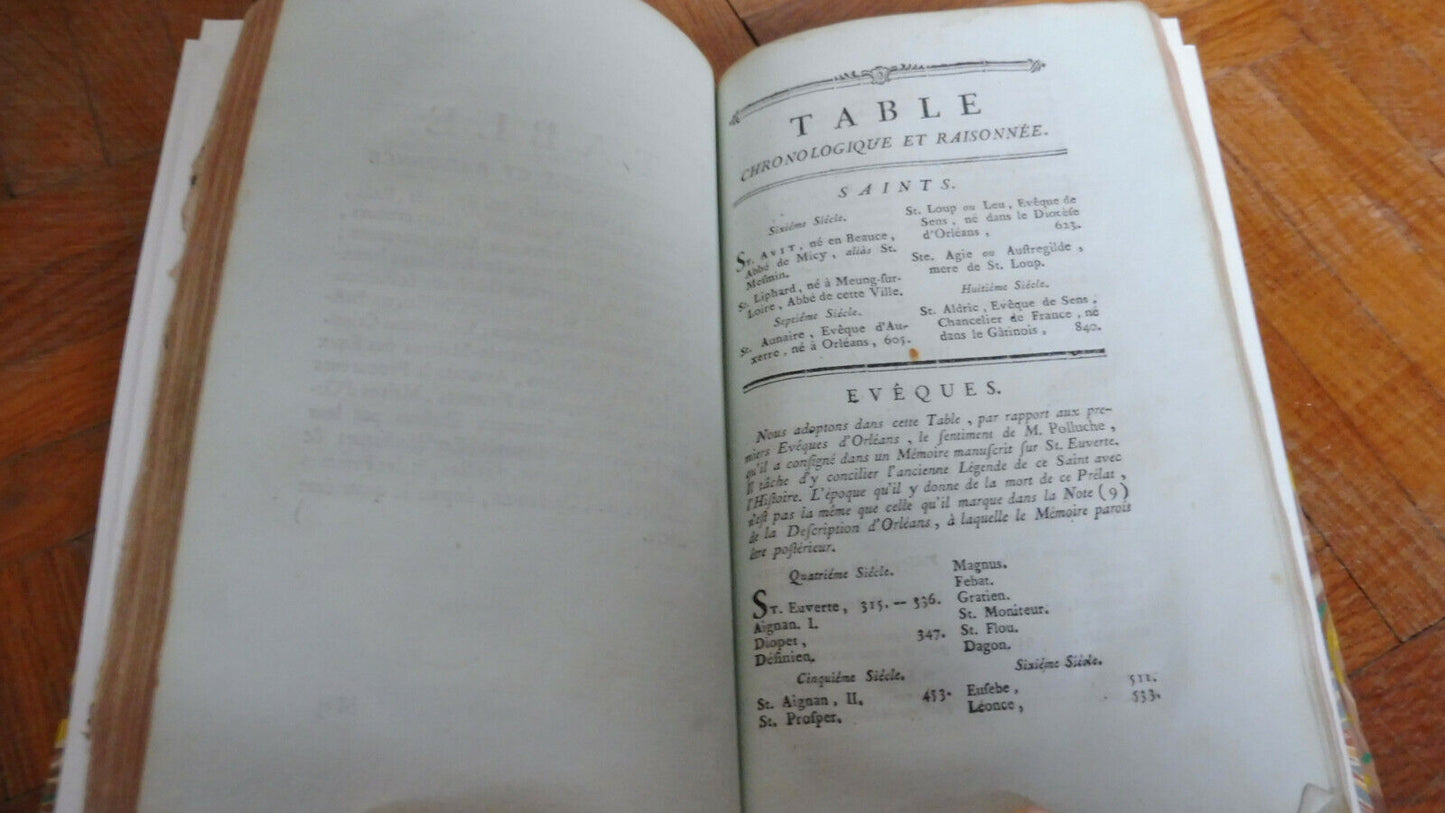 TABLE
CHRONOLOGIQUE ET RAISONNÉE.
SAINTS.
Sixiéme Siécle.
ST. AVIT, né en Beauce,
Abbé de Micy, aliàs St.
Meſmin.
St. Liphard, né à Meung-ſur-
Loire, Abbé de cette Ville.
Septiéme Siécle.
St. Aunaire, Evêque d'Au-
xerre, né à Orléans, 605.
St. Loup ou Leu, Evêque de
Sens, né dans le Diocèſe
d'Orléans, 623.
Ste. Agie ou Auſtregilde,
mere de St. Loup.
Huitiéme Siécle.
St. Aldric, Evêque de Sens,
Chancelier de France, né
dans le Gâtinois, 840.
EVÊQUES.
Nous adoptons dans cette Table, par rapport aux pre-
miers Evêques d'Orléans, le ſentiment de M. Polluche,
qu'il a conſigné dans un Mémoire manuſcrit ſur St. Euverte.
Il tâche d'y concilier l'ancienne Légende de ce Saint avec
l'Hiſtoire. L'époque qu'il y donne de la mort de ce Prélat,
n'eſt pas la même que celle qu'il marque dans la Note (9)
de la Deſcription d'Orléans, à laquelle le Mémoire parois
être poſtérieur.
Quatriéme Siécle.
ST. Euverte, 315. — 336.
Aignan. I.
Diopet, 347.
Définien.
Cinquiéme Siécle.
St. Aignan, II. 453.
St. Proſper.
Magnus.
Febat.
Gratien.
St. Moniteur.
St. Flou.
Dagon.
Sixiéme Siécle.
Euſebe, 511.
Léonce, 533.